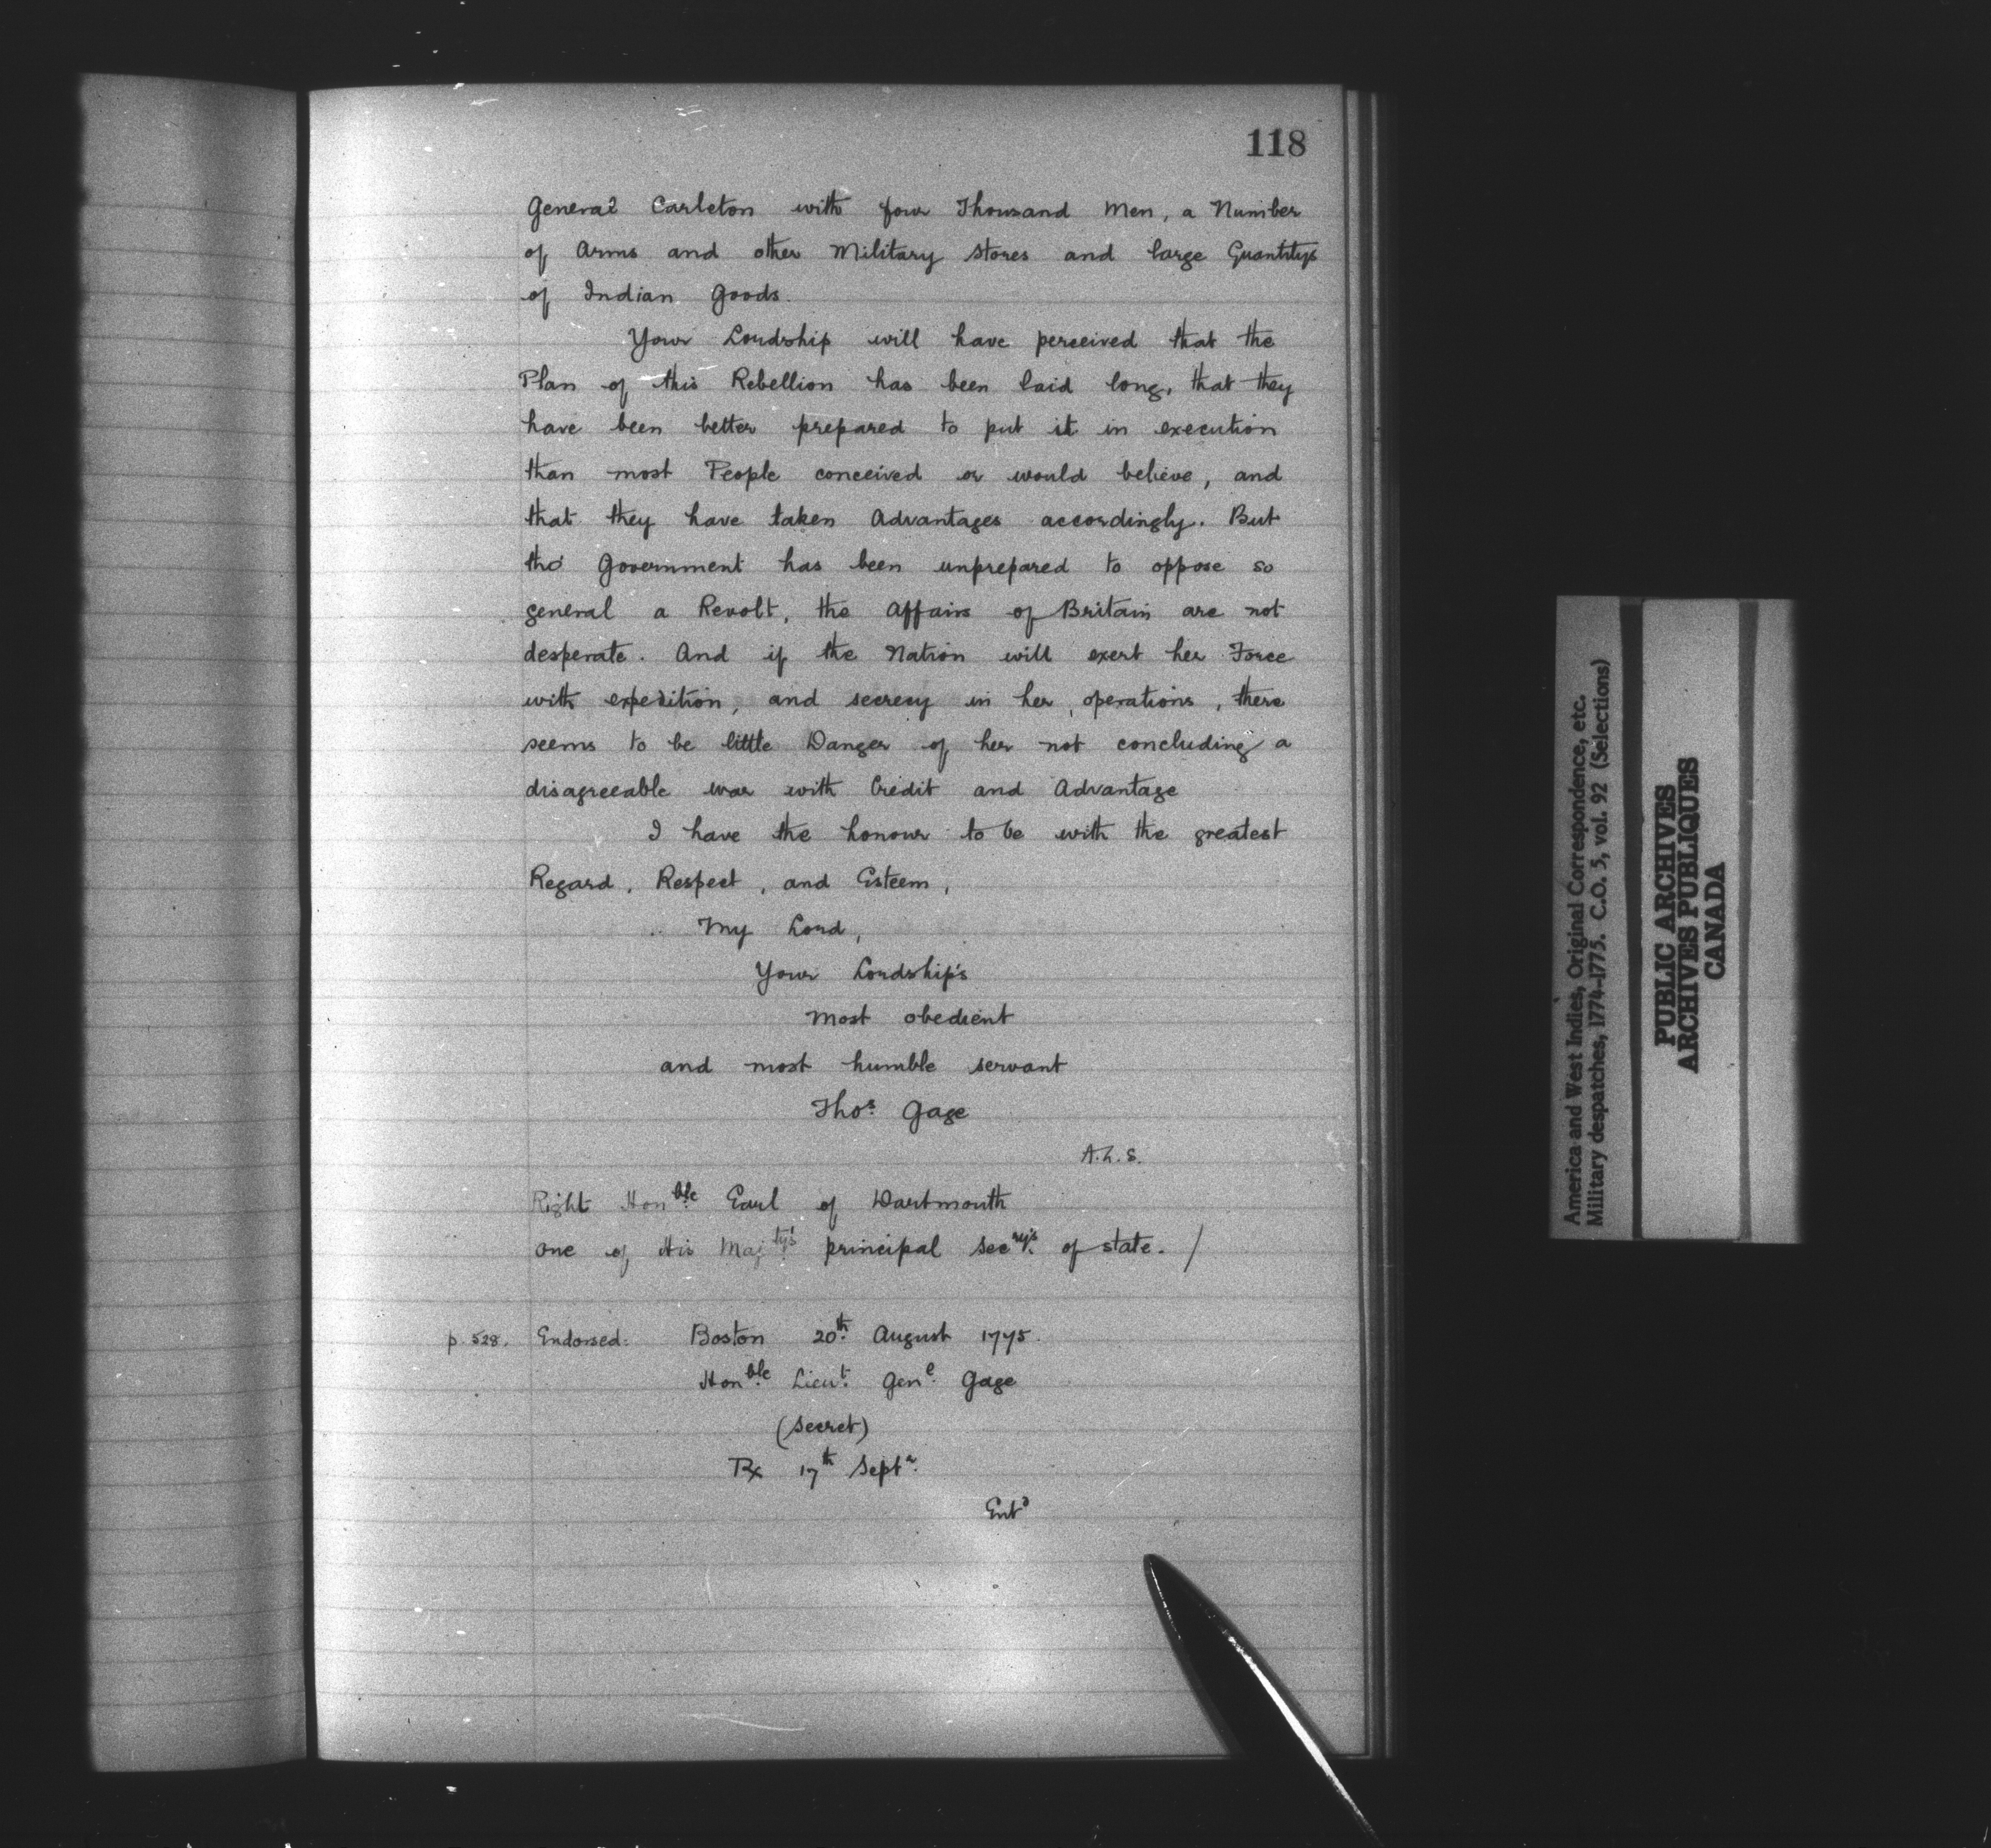 118
General Carleton with four Thousand Men, a Number
of Arms and other Military Stores and large Quantitys
of Indian Goods.
Your Lordship will have perceived that the
Plan of this Rebellion has been laid long, that they
have been better prepared to put it in execution
than most People conceived or would believe, and
that they have taken Advantages accordingly. But
tho' Government has been unprepared to oppose so
general a Revolt, the Affairs of Britain are not
desperate. And if the Nation will exert her Force
with expedition, and secrecy in her operations, there
seems to be little Danger of her not concluding a
disagreeable war with Credit and Advantage
I have the honour to be with the greatest
Regard, Respect, and Esteem,
My Lord,
Your Lordship's
most obedient
and most humble servant
Thos. Gage
A.L.S.
Right Honble Earl of Dartmouth
one of His Majty's principal Secry's of state. /
p. 528. Endorsed: Boston 20th August 1775.
Honble Lieut. Genl. Gage
(Secret)
Rx 17th Septr.
Entd
America and West Indies, Original Correspondence, etc.
Military despatches, 1774-1775. C.O. 5, vol. 92 (Selections)
PUBLIC ARCHIVES
ARCHIVES PUBLIQUES
CANADA